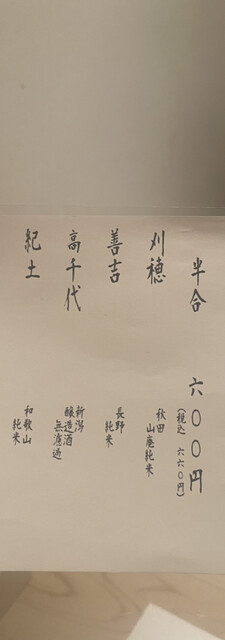 半合 六〇〇円
(税込 六六〇円)
刈穂 秋田 山廃純米
善吉 長野 純米
高千代 新潟 醸造酒 無濾過
紀土 和歌山 純米